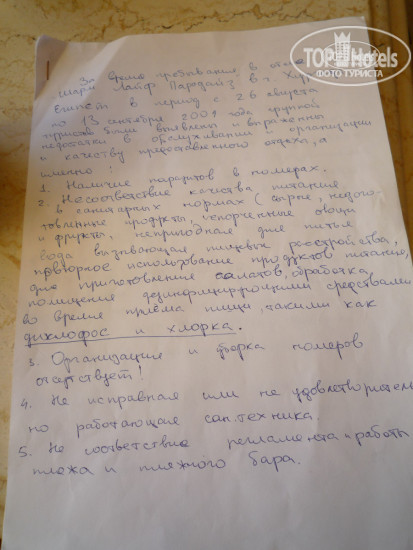 TOPHotels
ФОТО ТУРИСТА
За время пребывания в отеле
Шарм Лайф Парадайз в г. Хур
Египет в период с 26 августа
по 13 сентября 2009 года группой
туристов были выявлены и выражены
недостатки в обслуживании и организации
и качеству предоставленного отдыха, а
именно:
1. Наличие паразитов в номерах.
2. Несоответствие качества питания
в санитарных нормах (сырые, недого-
товленные продукты, испорченные овощи
и фрукты, непригодная для питья
вода вызывающая пищевые расстройства,
повторное использование продуктов питания,
для приготовления салатов, обработка
помещения дезинфицирующими средствами
во время приёма пищи, такими как
дихлофос и хлорка.
3. Организация и уборка номеров
отсутствует!
4. Не исправная или не удовлетворитель
но работающая сан.техника.
5. Не соответствие регламента и работы
пляжа и пляжного бара.